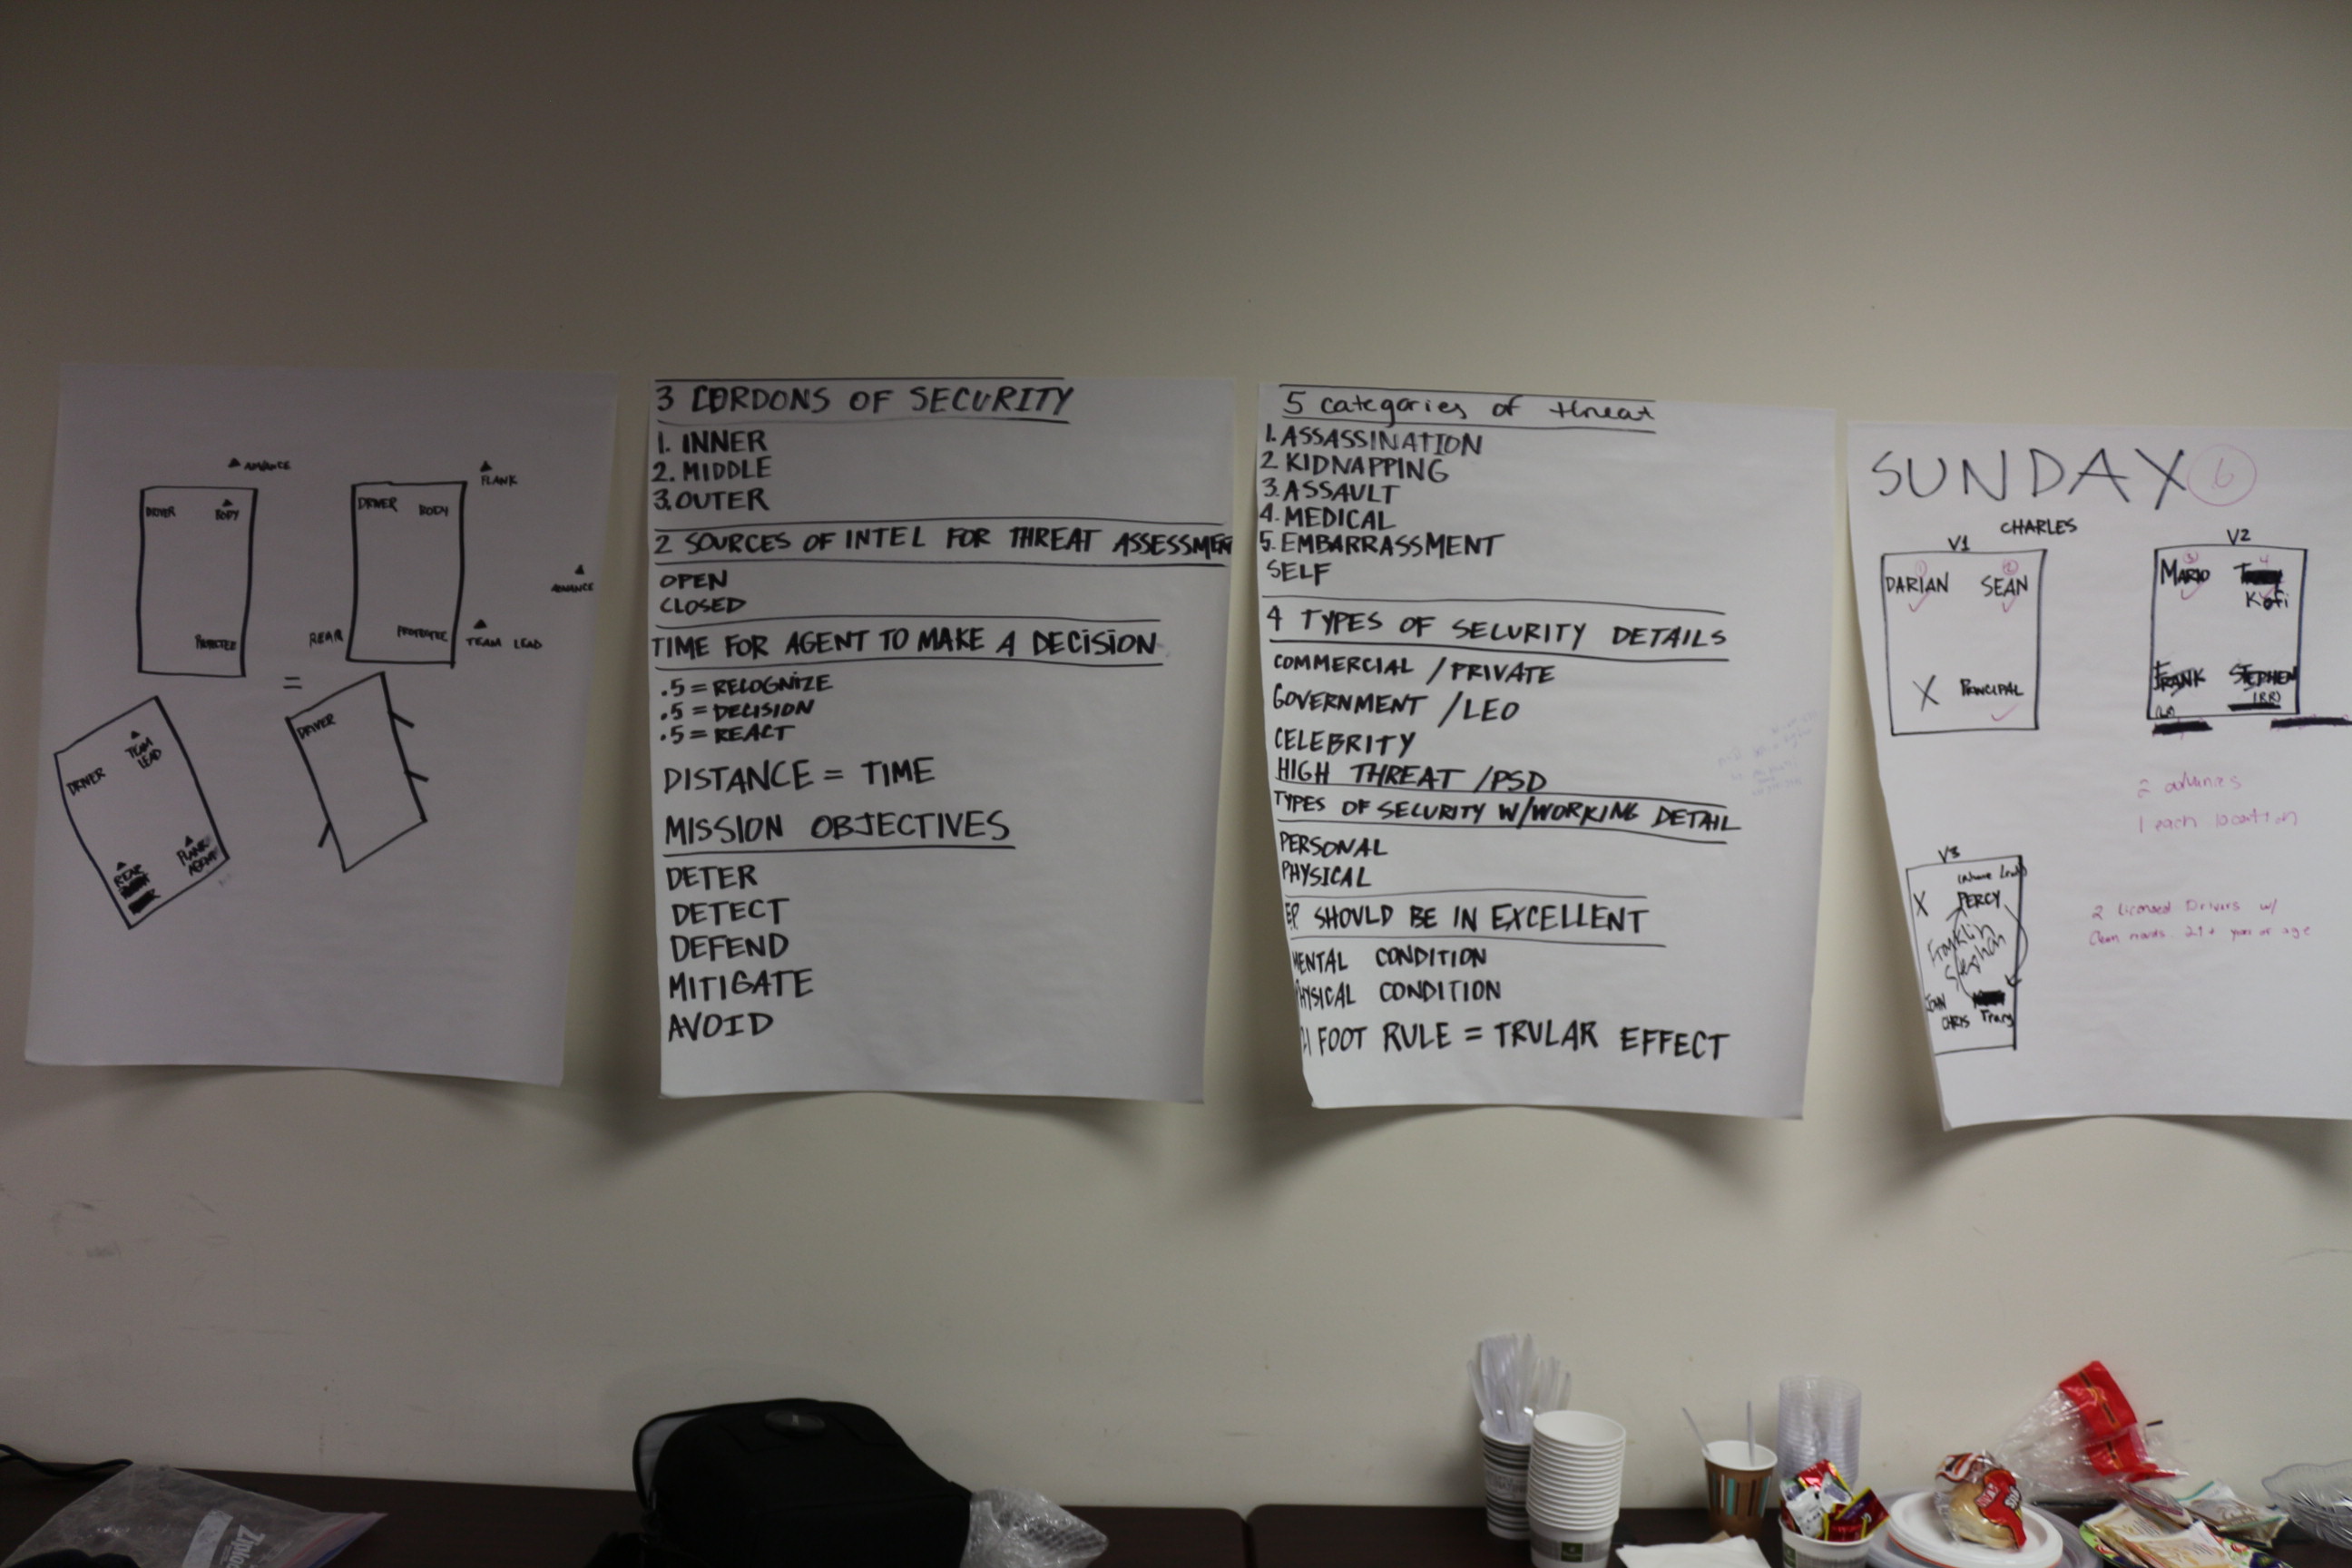 ADVANCE
DRIVER
BODY
PROTECTEE
FLANK
DRIVER BODY
ADVANCE
REAR
PROTECTEE
TEAM LEAD
=
DRIVER
TEAM
LEAD
REAR
FLANK
AGENT
DRIVER
3 CORDONS OF SECURITY
1. INNER
2. MIDDLE
3. OUTER
2 SOURCES OF INTEL FOR THREAT ASSESSMEN
OPEN
CLOSED
TIME FOR AGENT TO MAKE A DECISION
.5 = RECOGNIZE
.5 = DECISION
.5 = REACT
DISTANCE = TIME
MISSION OBJECTIVES
DETER
DETECT
DEFEND
MITIGATE
AVOID
5 categories of threat
1. ASSASSINATION
2 KIDNAPPING
3. ASSAULT
4. MEDICAL
5. EMBARRASSMENT
SELF
4 TYPES OF SECURITY DETAILS
COMMERCIAL / PRIVATE
GOVERNMENT / LEO
CELEBRITY
HIGH THREAT / PSD
TYPES OF SECURITY W/WORKING DETAIL
PERSONAL
PHYSICAL
EP SHOULD BE IN EXCELLENT
MENTAL CONDITION
PHYSICAL CONDITION
21 FOOT RULE = TRULAR EFFECT
SUNDAY 6
CHARLES
V1
DARIAN SEAN
X PRINCIPAL
V2
3 4
MARIO
Kofi
FRANK STEPHEN
(RR)
2 advances
1 each location
V3
X PERCY
Franklin
Stephen
JOHN
CHRIS Tracy
2 licensed Drivers w/
Clean records. 21+ years of age
Ziploc